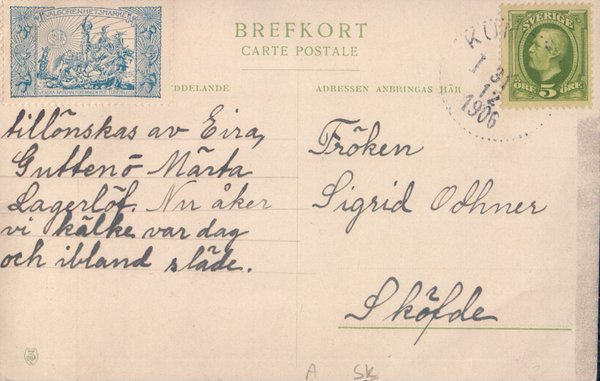 VÄLGÖRENHETSMÄRKE
BREFKORT
CARTE POSTALE
DDELANDE
ADRESSEN ANBRINGAS HÄR
SVERIGE
ÖRE 5 ÖRE
31
12
1906
tillönskas av Eira,
Guttenō Märta
Lagerlöf. Nu åker
vi kälke var dag
och ibland släde.
Fröken
Sigrid Odhner
Sköfde
A SK